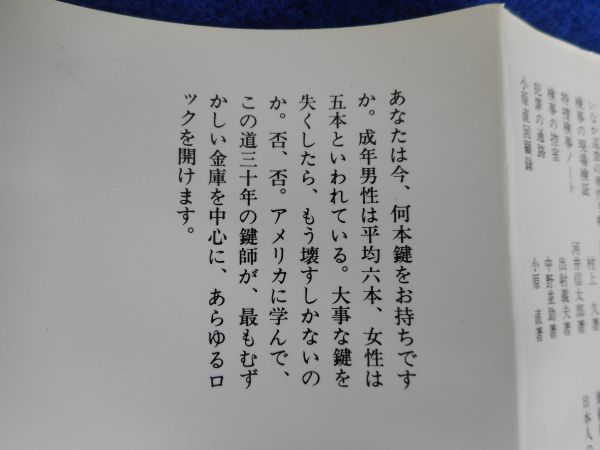 あなたは今、何本鍵をお持ちです
か。成年男性は平均六本、女性は
五本といわれている。大事な鍵を
失くしたら、もう壊すしかないの
か。否、否。アメリカに学んで、
この道三十年の鍵師が、最もむず
かしい金庫を中心に、あらゆるロ
ックを開けます。
村上 久著
検事の現場検証 河井信太郎著
特捜検事ノート 出射義夫著
検事の控室 中野並助著
犯罪の通路 小原 直著
小原直回顧録
日本人の